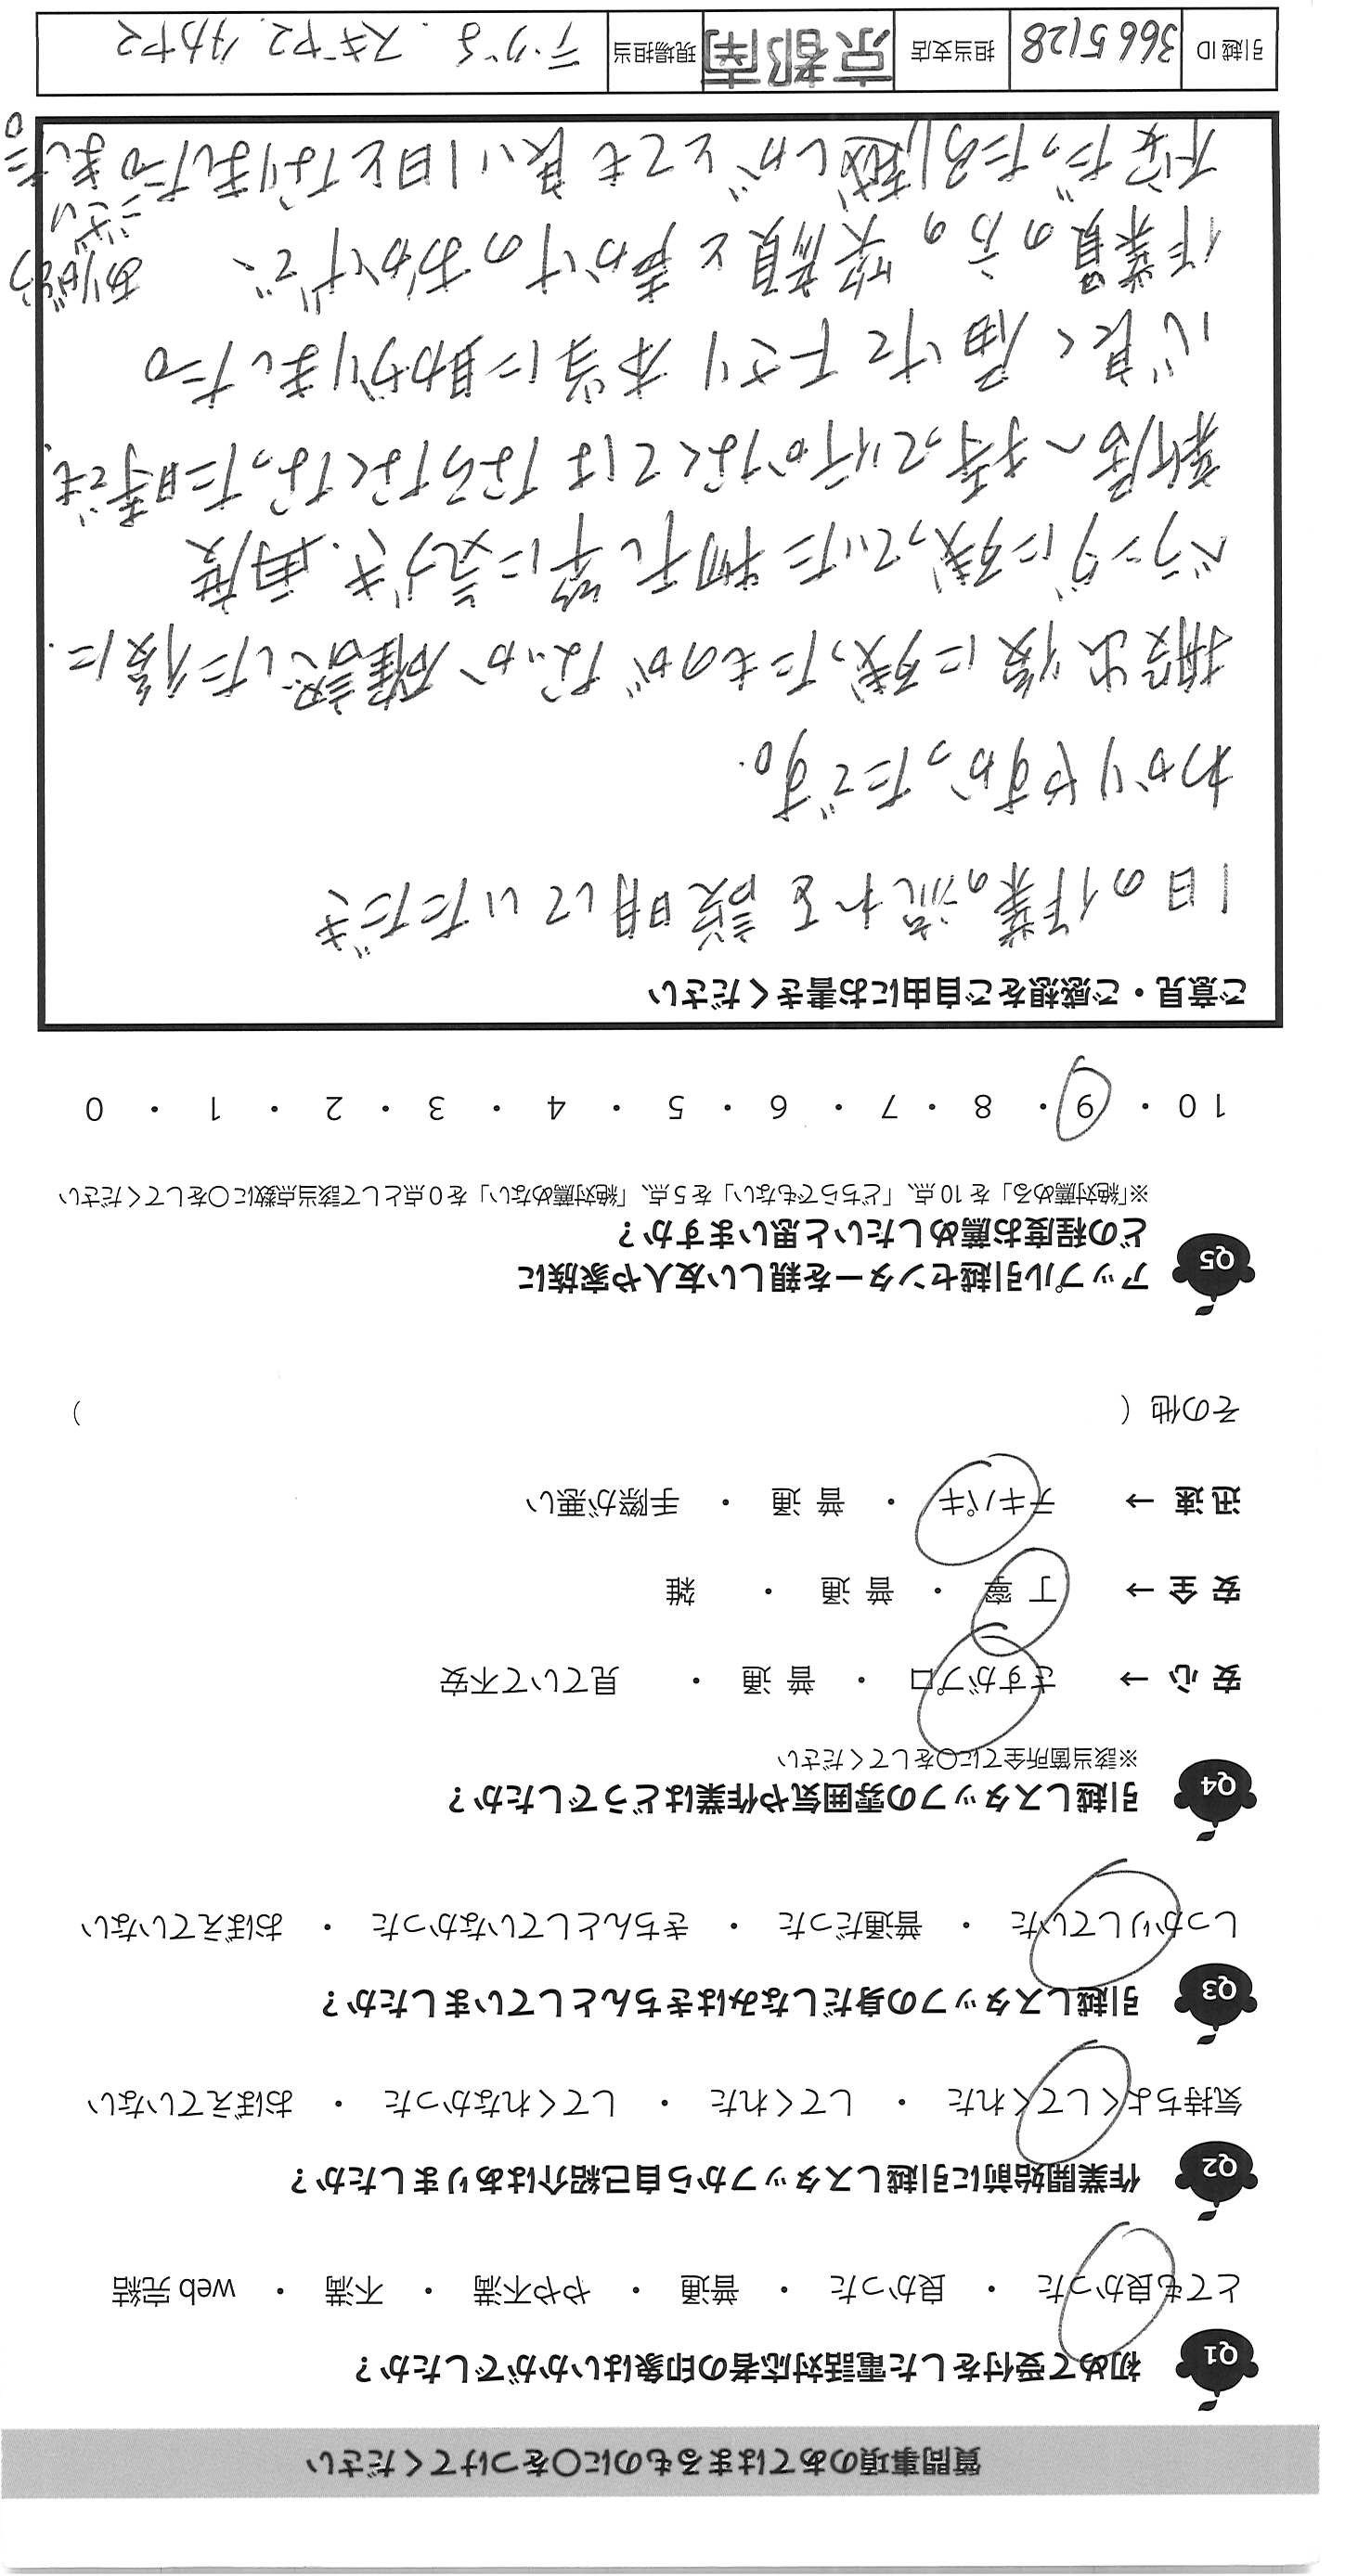 質問事項のあてはまるものに○をつけてください
Q1 初めて受付をした電話対応者の印象はいかがでしたか？
とても良かった ・ 良かった ・ 普通 ・ やや不満 ・ 不満 ・ web 完結
Q2 作業開始前に引越しスタッフから自己紹介はありましたか？
気持ちよくしてくれた ・ してくれた ・ してくれなかった ・ おぼえていない
Q3 引越しスタッフの身だしなみはきちんとしていましたか？
しっかりしていた ・ 普通だった ・ きちんとしていなかった ・ おぼえていない
Q4 引越しスタッフの雰囲気や作業はどうでしたか？
※該当箇所全てに○をしてください
安 心 → さすがプロ ・ 普 通 ・ 見ていて不安
安 全 → 丁 寧 ・ 普 通 ・ 雑
迅 速 → テキパキ ・ 普 通 ・ 手際が悪い
その他（ ）
Q5 アップル引越センターを親しい友人や家族に
どの程度お薦めしたいと思いますか？
※「絶対薦める」を 10 点、「どちらでもない」を 5 点、「絶対薦めない」を 0 点として該当点数に○をしてください
10 ・ 9 ・ 8 ・ 7 ・ 6 ・ 5 ・ 4 ・ 3 ・ 2 ・ 1 ・ 0
ご意見・ご感想をご自由にお書きください
1日の作業の流れを説明していただき
わかりやすかったです。
搬出後に残ったものがないか確認した後に、
ベランダに残っていた物干し竿に気づき、再度
新居へ持って行かなくてはならなくなった時でも、
心良く届けて下さり本当に助かりました。
作業員の方の笑顔と声かけのおかげで、
不安だった引越しがとても良い1日となりました。
ありがとう
ござい
ました。
引越 ID 3665128 担当支店 京都南 現場担当 スギヤマ、タカヤマ